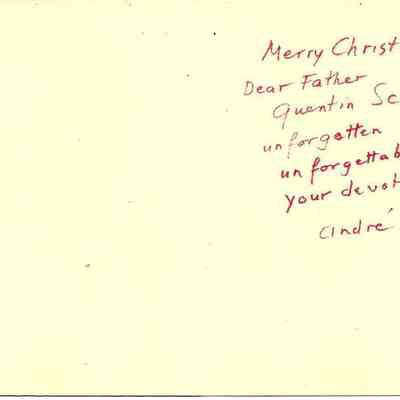 Merry Christ
Dear Father
Quentin Sc
unforgotten
unforgettab
your devot
André